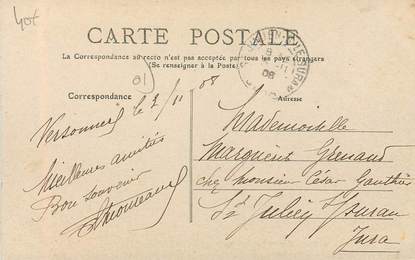 40f
CARTE POSTALE
La Correspondance au recto n'est pas acceptée par tous les pays étrangers
(Se renseigner à la Poste)
01
Correspondance
Adresse
le 2/11 08
Meilleures amitiés
Bon souvenir
Mademoiselle
Marguerite
chez Monsieur César Gauthier
St Julien s/ Suran
Jura